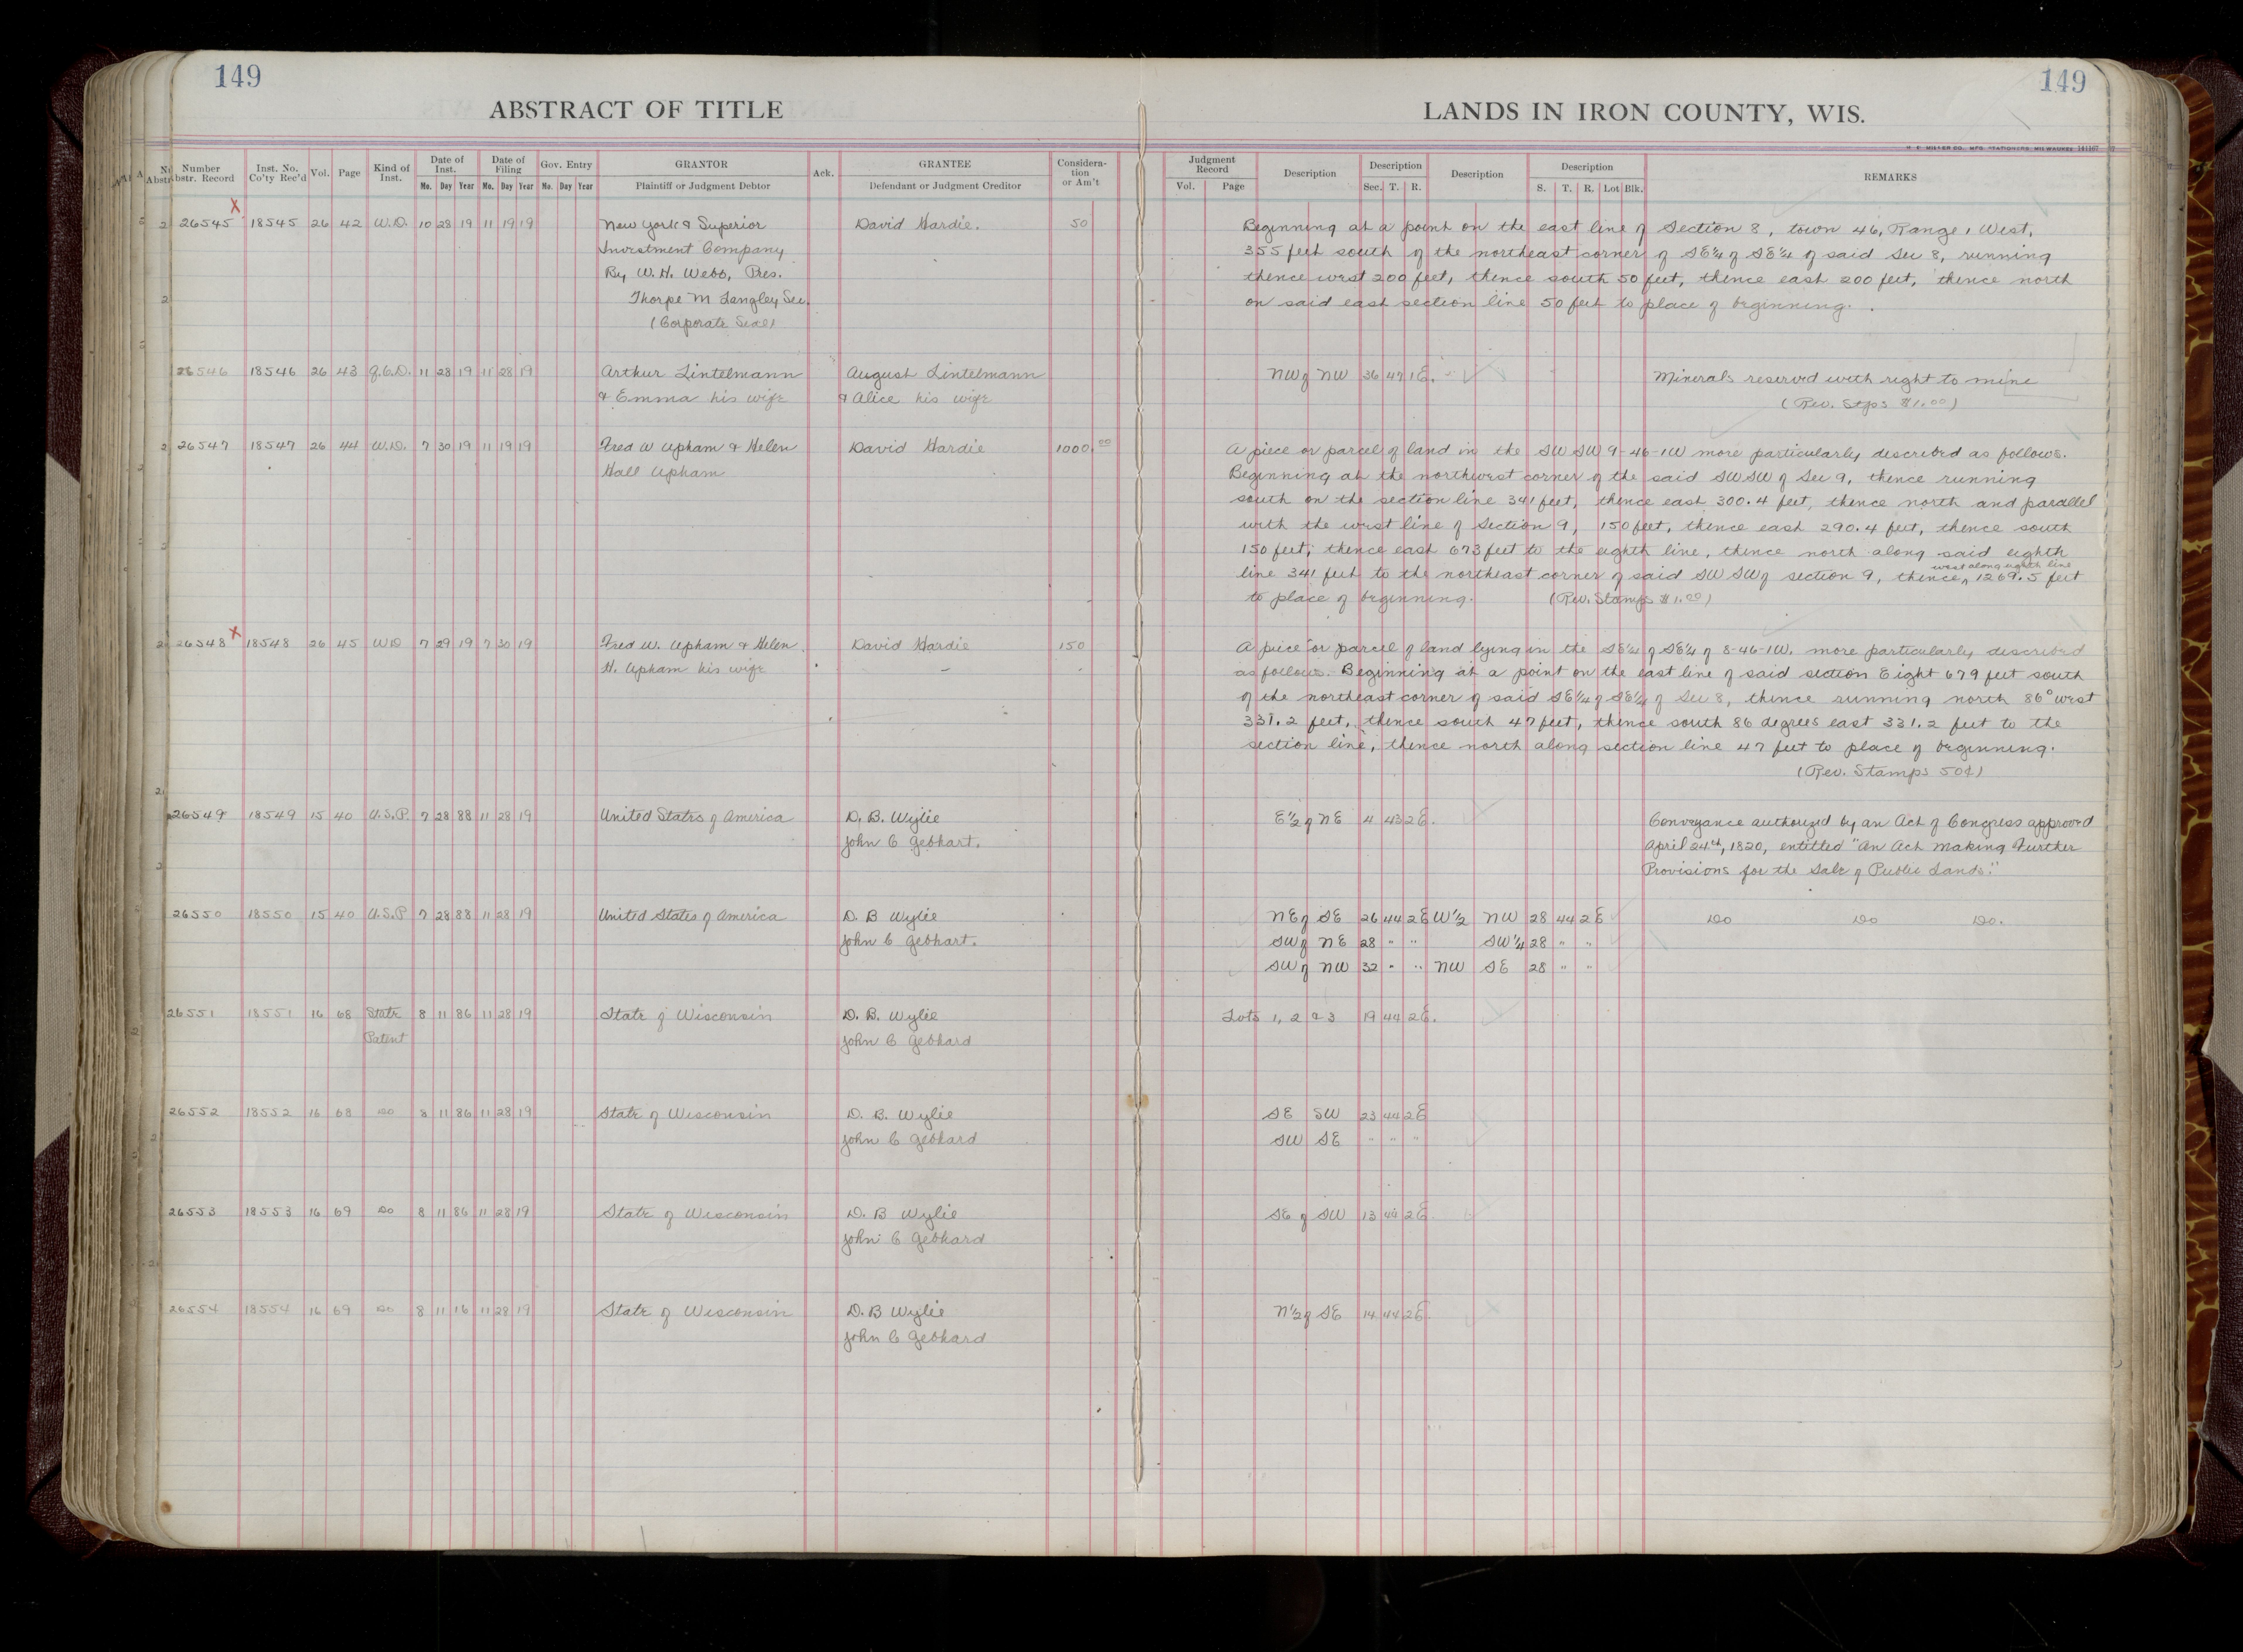 149
149
ABSTRACT OF TITLE
LANDS IN IRON COUNTY, WIS.
Number Abstr. Record Inst. No. Co'ty Rec'd Vol. Page Kind of Inst. Date of Inst. Mo. Day Year Date of Filing Mo. Day Year Gov. Entry Mo. Day Year GRANTOR Plaintiff or Judgment Debtor Ack. GRANTEE Defendant or Judgment Creditor Considera-tion or Am't
Judgment Record Vol. Page Description Description Sec. T. R. Description Description S. T. R. Lot Blk. REMARKS
26545 X 18545 26 42 W.D. 10 28 19 11 19 19 New York & Superior David Hardie. 50 Beginning at a point on the east line of Section 8, town 46, Range 1 West,
Investment Company 355 feet south of the northeast corner of SE¼ of SE¼ of said Sec 8, running
By W. H. Webb, Pres. thence west 200 feet, thence south 50 feet, thence east 200 feet, thence north
Thorpe M Langley Sec. on said east section line 50 feet to place of beginning.
(Corporate Seal)
26546 18546 26 43 Q.C.D. 11 28 19 11 28 19 Arthur Lintelmann August Lintelmann NW of NW 36 47 1E. Minerals reserved with right to mine
& Emma his wife & Alice his wife (Rev. Stps $1.00)
26547 18547 26 44 W.D. 7 30 19 11 19 19 Fred W Upham & Helen David Hardie 1000.00 A piece or parcel of land in the SW SW 9-46-1W more particularly described as follows.
Hall Upham Beginning at the northwest corner of the said SWSW of Sec 9, thence running
south on the section line 341 feet, thence east 300.4 feet, thence north and parallel
with the west line of Section 9, 150 feet, thence east 290.4 feet, thence south
150 feet, thence east 673 feet to the eighth line, thence north along said eighth
line 341 feet to the northeast corner of said SW SW of section 9, thence west along eighth line 1269.5 feet
to place of beginning. (Rev. Stamps $1.00)
26548 X 18548 26 45 WD 7 29 19 7 30 19 Fred W. Upham & Helen David Hardie 150 A piece or parcel of land lying in the SE¼ of SE¼ of 8-46-1W. more particularly described
H. Upham his wife as follows. Beginning at a point on the east line of said section Eight 679 feet south
of the northeast corner of said SE¼ of SE¼ of Sec 8, thence running north 86° west
331.2 feet, thence south 47 feet, thence south 86 degrees east 331.2 feet to the
section line, thence north along section line 47 feet to place of beginning.
(Rev. Stamps 50¢)
26549 18549 15 40 U.S.P. 7 28 88 11 28 19 United States of America D. B. Wylie E½ of NE 4 43 2E. Conveyance authorized by an Act of Congress approved
John C Gebhart. April 24th, 1820, entitled "An Act Making Further
Provisions for the Sale of Public Lands."
26550 18550 15 40 U.S.P 7 28 88 11 28 19 United States of America D. B Wylie NE of SE 26 44 2E W½ NW 28 44 2E Do Do Do.
John C Gebhart. SW of NE 28 " " SW¼ 28 " "
SW of NW 32 " " NW SE 28 " "
26551 18551 16 68 State 8 11 86 11 28 19 State of Wisconsin D. B. Wylie Lots 1, 2 & 3 19 44 2E.
Patent John C Gebhard
26552 18552 16 68 Do 8 11 86 11 28 19 State of Wisconsin D. B. Wylie SE SW 23 44 2E
John C Gebhard SW SE " " "
26553 18553 16 69 Do 8 11 86 11 28 19 State of Wisconsin D. B Wylie SE of SW 13 44 2E.
John C Gebhard
26554 18554 16 69 Do 8 11 16 11 28 19 State of Wisconsin D. B Wylie N½ of SE 14 44 2E.
John C Gebhard